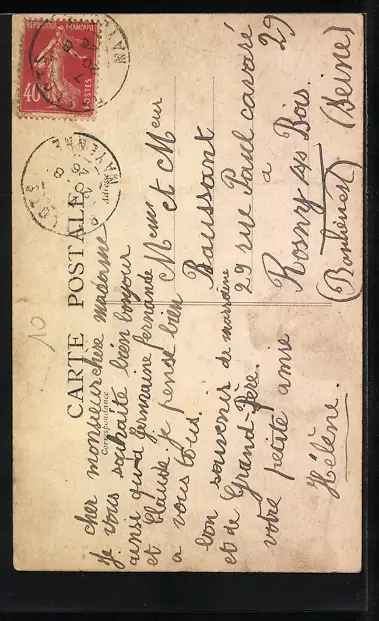 CARTE POSTALE
Correspondance
Adresse
cher monsieur chère madame
je vous souhaite bien bonjour
ainsi qu'a Germaine fernande
et Claude. je pense bien
a vous tous.
bon souvenir de marraine
et de Grand-Père.
votre petite amie
Hélène.
Mem et Meur
Baussant
29 rue Paul cavaré 29
a
Rosny s/s Bois.
(Banlieue) (Seine)
10
40
POSTES
MAYENNE